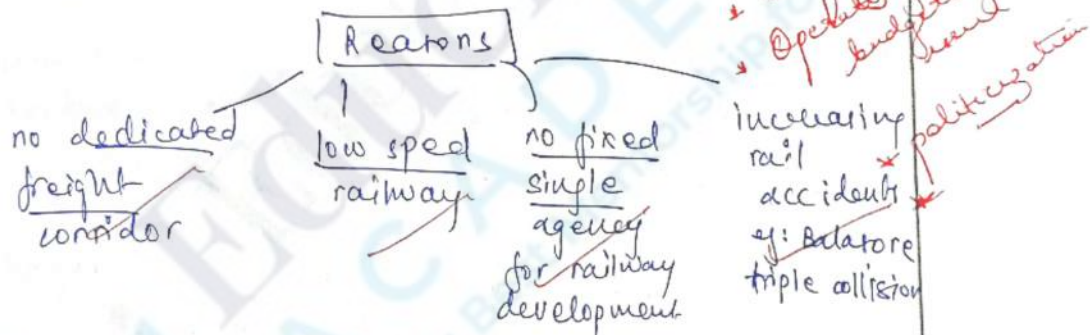 Reasons
no dedicated
freight
corridor
low sped
railway
no fixed
single
agency
for railway
development
increasing
rail
accidents
eg: Balasore
triple collision
politicization